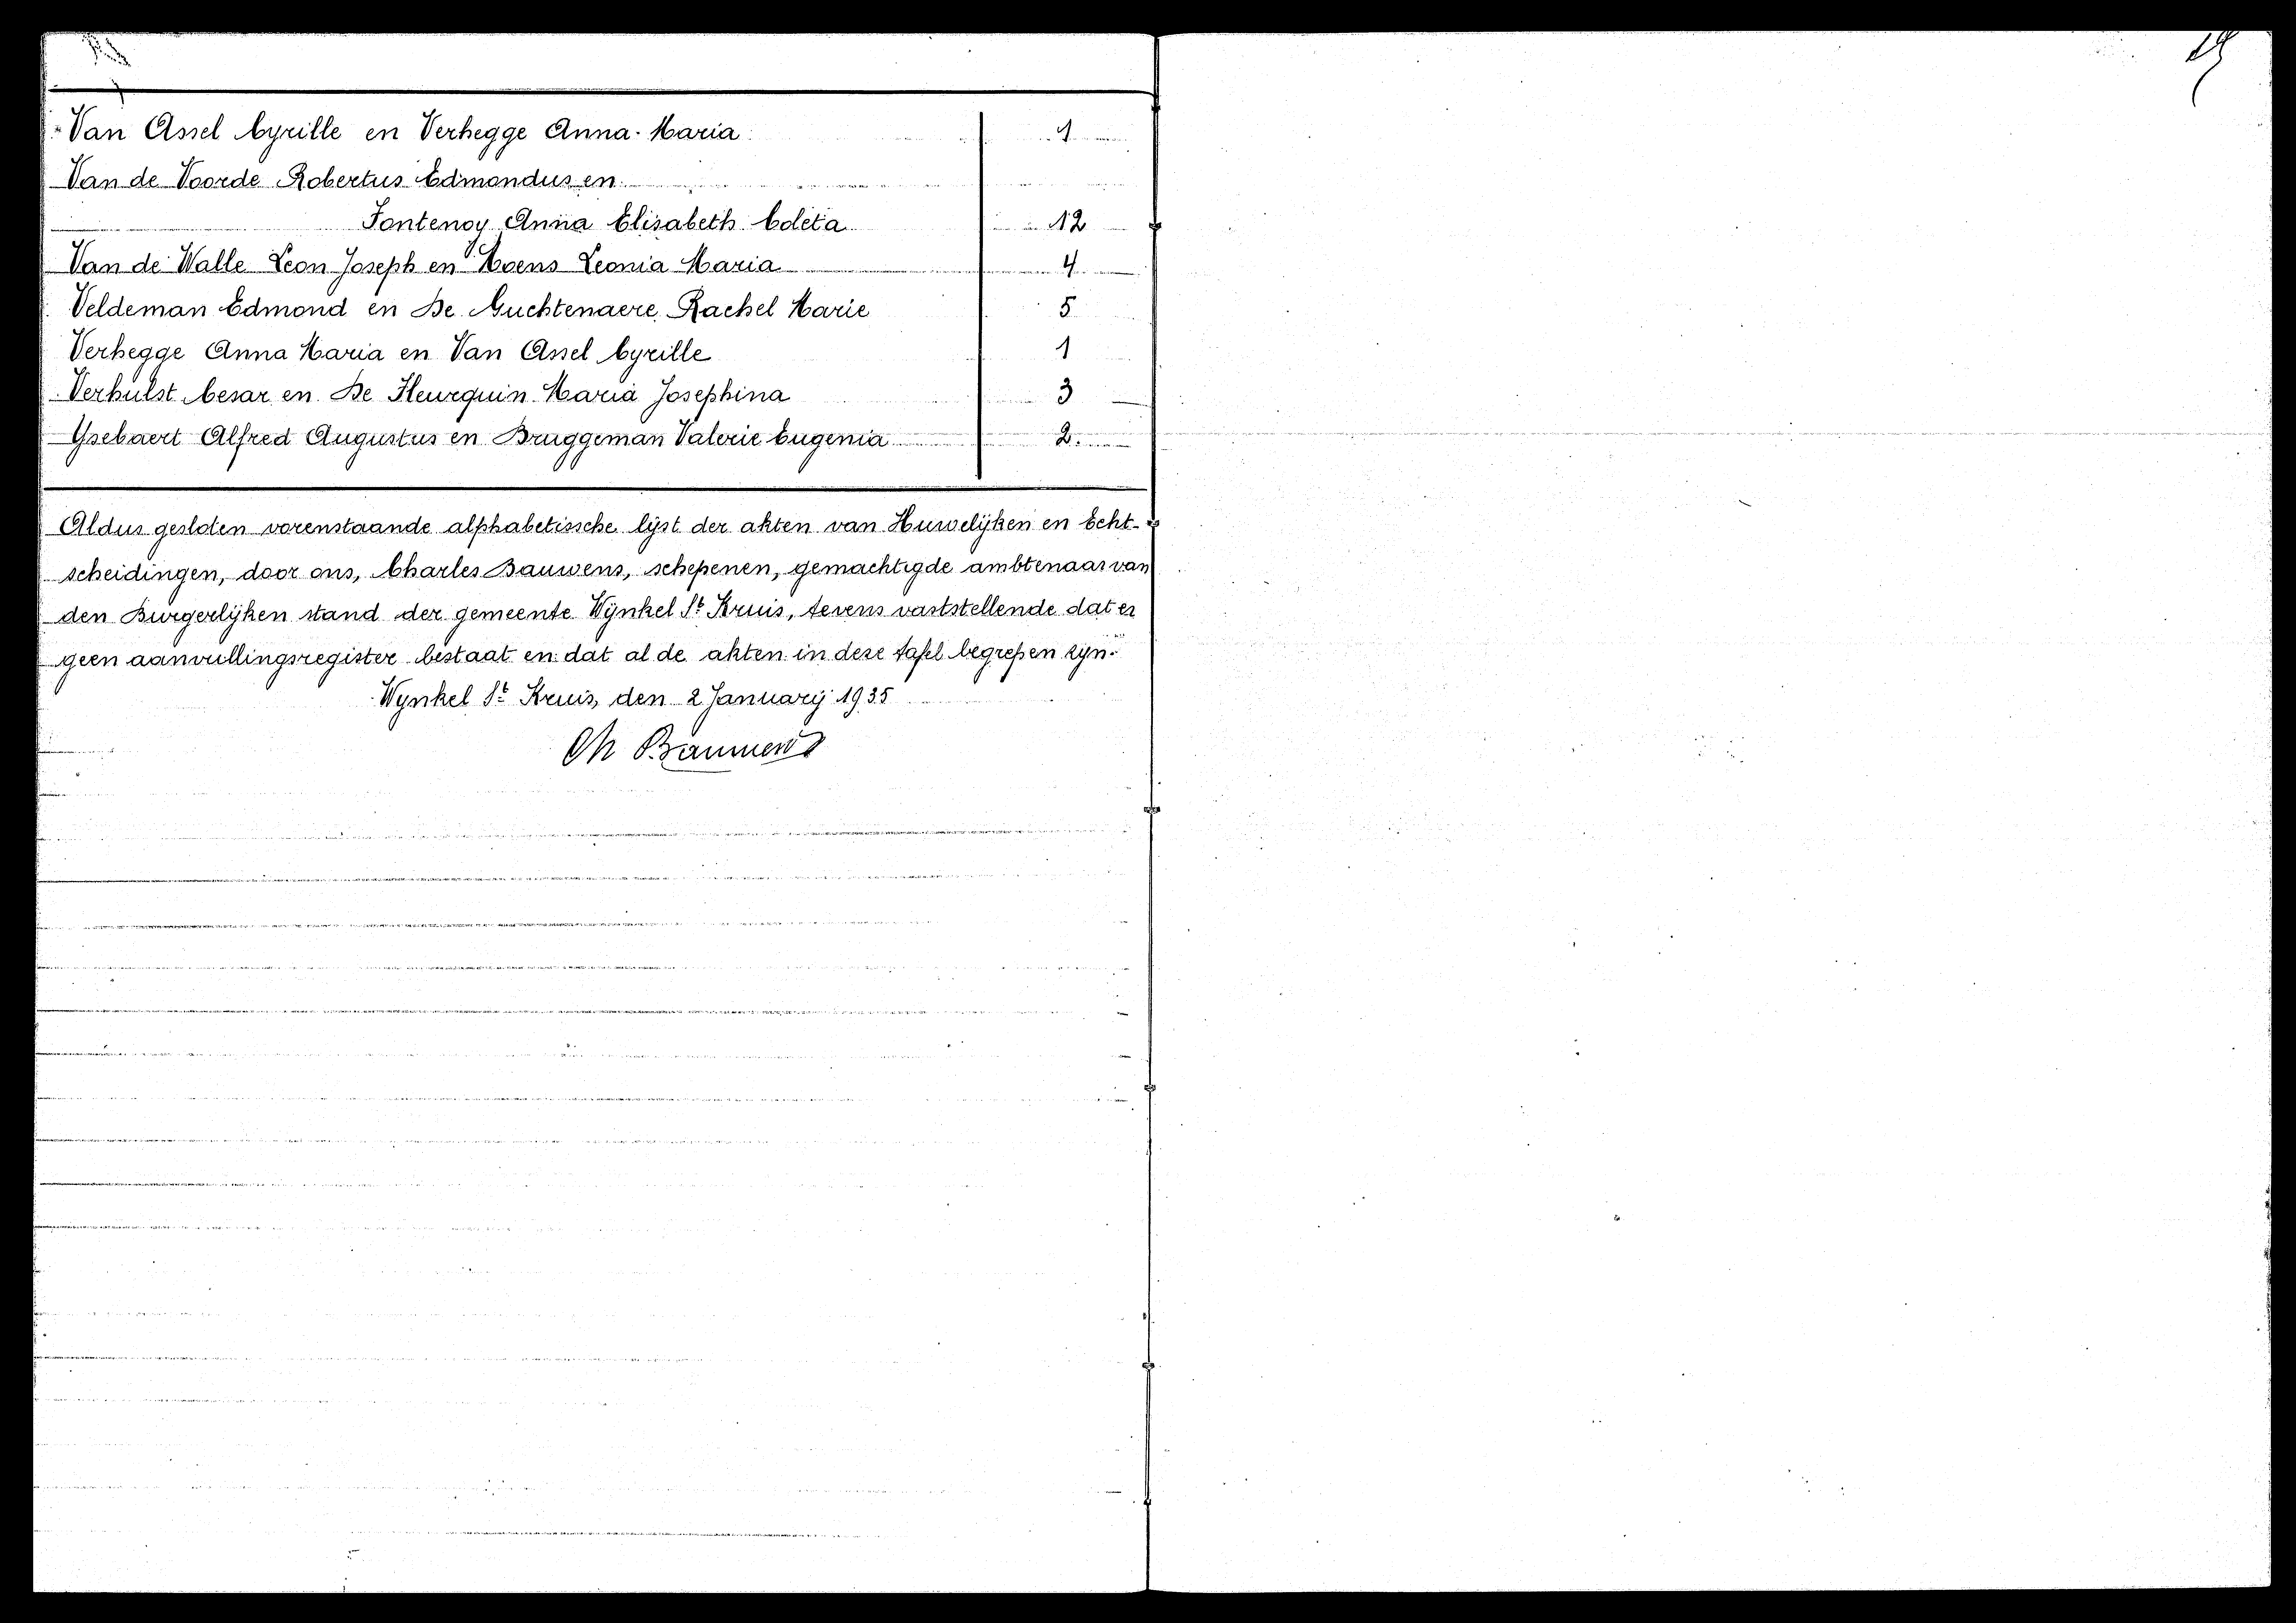 Van Assel Cyrille en Verhegge Anna-Maria 1
Van de Voorde Robertus Edmondus en
Fontenoy Anna Elisabeth Coleta 12
Van de Walle Leon Joseph en Moens Leonia Maria 4
Veldeman Edmond en De Muchtenaere Rachel Marie 5
Verhegge Anna Maria en Van Assel Cyrille 1
Verhulst Cesar en De Fleurquin Maria Josephina 3
Ysebaert Alfred Augustus en Bruggeman Valerie Eugenia 2
Aldus gesloten vorenstaande alphabetissche lijst der akten van Huwelijken en Echt-
scheidingen, door ons, Charles Bauwens, schepenen, gemachtigde ambtenaar van
den Burgerlijken stand der gemeente Wynkel St Kruis, tevens vaststellende dat er
geen aanvullingsregister bestaat en dat al de akten in deze tafel begrepen zyn.
Wynkel St Kruis, den 2 January 1935
Ch Bauwens